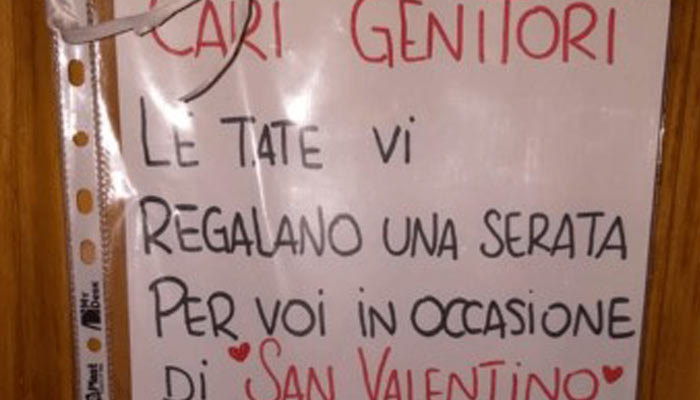 CARI GENITORI
LE TATE VI
REGALANO UNA SERATA
PER VOI IN OCCASIONE
DI SAN VALENTINO
My Desk